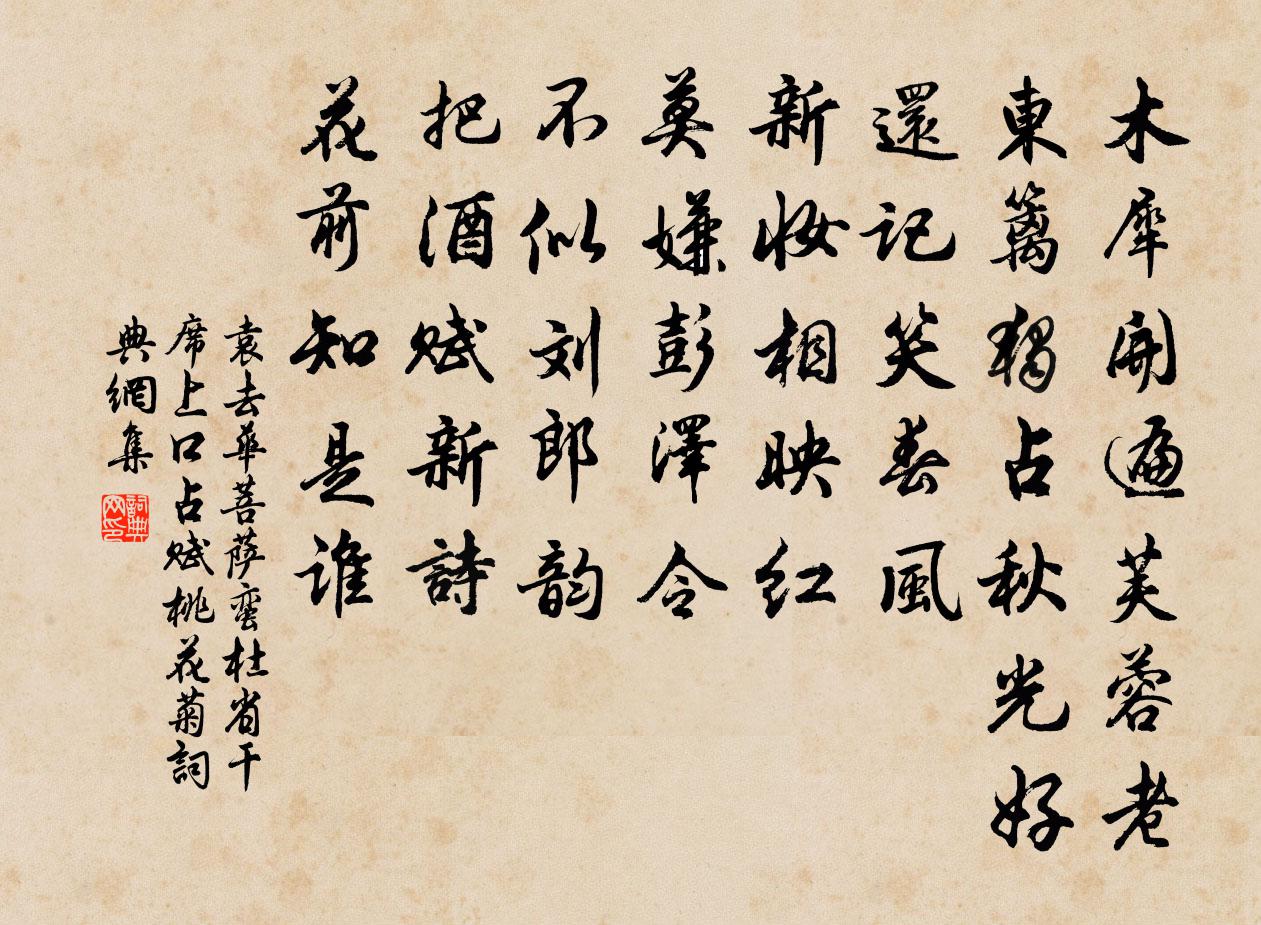 木犀開遍芙蓉老
東籬獨占秋光好
還記笑春風
新妝相映紅
莫嫌彭澤令
不似刘郎韵
把酒賦新詩
花前知是誰
袁去華菩薩蠻杜省干
席上口占賦桃花菊詞
典網集
詞典网印